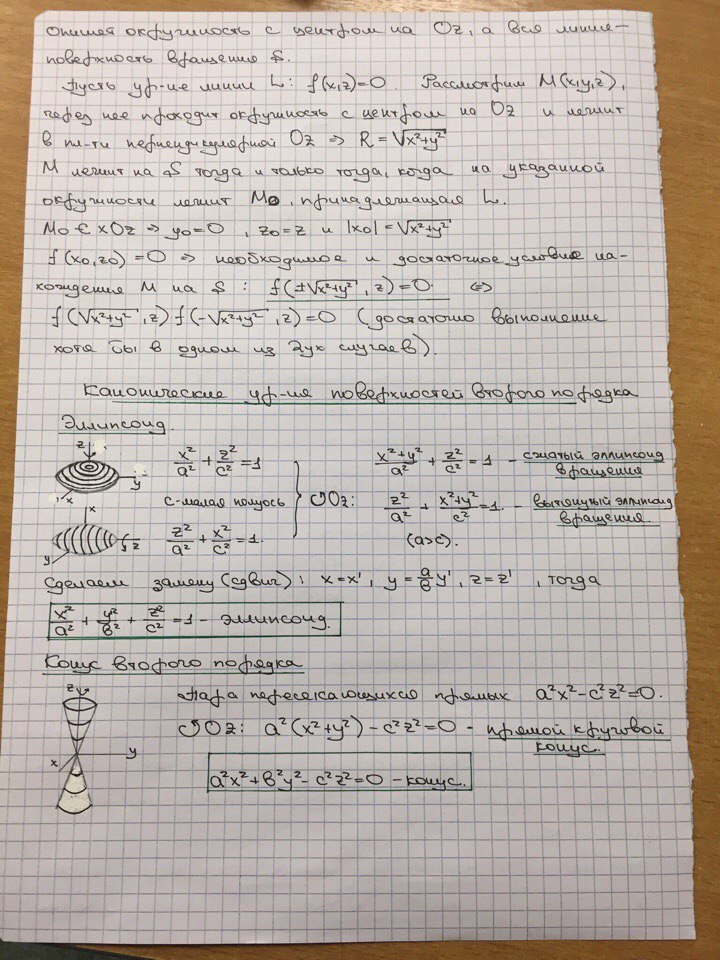 опишет окружность с центром на Oz, а вся линия-
поверхность вращения S.
Пусть ур-ие линии L: f(x,z)=0. Рассмотрим M(x,y,z),
через нее проходит окружность с центром на Oz и лежит
в пл-ти перпендикулярной Oz ⇒ R = √(x²+y²)
M лежит на S тогда и только тогда, когда на указанной
окружности лежит M₀, принадлежащая L.
M₀ ∈ xOz ⇒ y₀=0, z₀=z и |x₀| = √(x²+y²)
f(x₀,z₀)=0 ⇒ необходимое и достаточное условие на-
хождения M на S: f(±√(x²+y²), z)=0. ⇔
f(√(x²+y²), z) f(-√(x²+y²), z)=0 (достаточно выполнение
хотя бы в одном из двух случаев).
Канонические ур-ия поверхностей второго порядка
Эллипсоид.
z y x
x²/a² + z²/c² = 1
c-малая полуось
x y z
z²/a² + x²/c² = 1.
↺Oz:
(x²+y²)/a² + z²/c² = 1 - сжатый эллипсоид вращения
z²/a² + (x²+y²)/c² = 1. - вытянутый эллипсоид вращения.
(a>c).
Сделаем замену (сдвиг): x=x', y=a/b y', z=z', тогда
x²/a² + y²/b² + z²/c² = 1 - эллипсоид.
Конус второго порядка
z y x
Пара пересекающихся прямых a²x²-c²z²=0.
↺OZ: a²(x²+y²)-c²z²=0 - прямой круговой
конус.
a²x²+b²y²-c²z²=0 - конус.